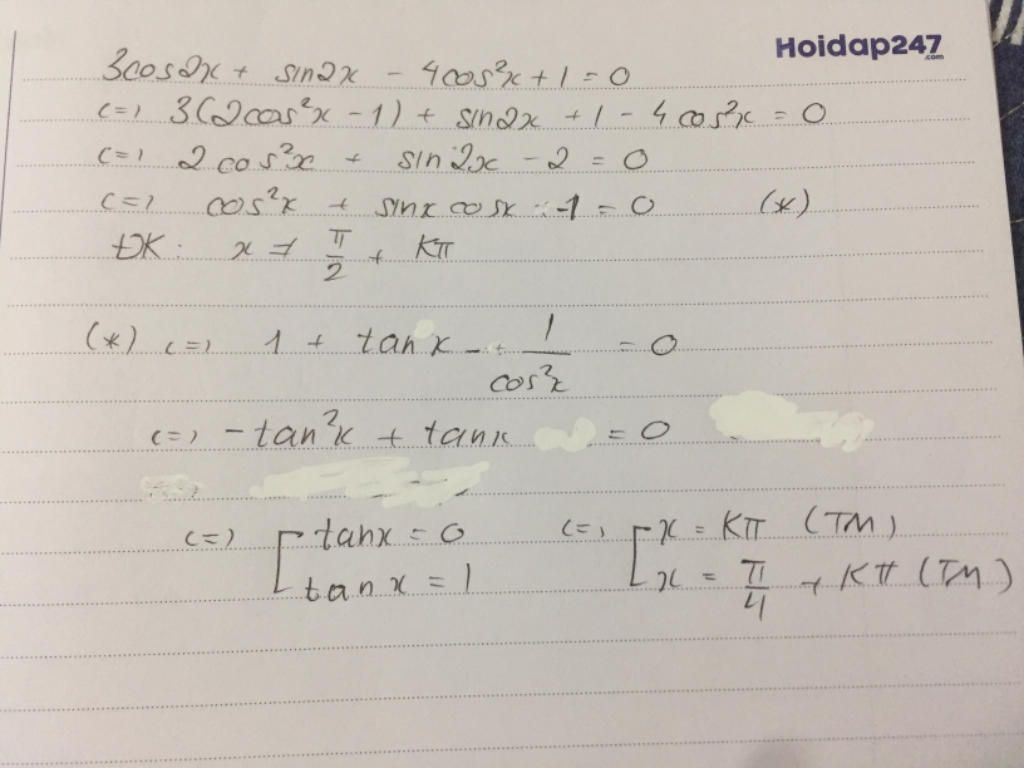 Hoidap247.com
3cos2x + sin2x - 4cos²x + 1 = 0
(=) 3(2cos²x - 1) + sin2x + 1 - 4cos²x = 0
(=) 2cos²x + sin2x - 2 = 0
(=) cos²x + sinx cosx - 1 = 0 (*)
ĐK: x ≠ π/2 + Kπ
(*) (=) 1 + tanx - 1/cos²x = 0
(=) -tan²x + tanx = 0
(=) [tanx = 0 (=) [x = Kπ (TM)
tanx = 1 x = π/4 + Kπ (TM)